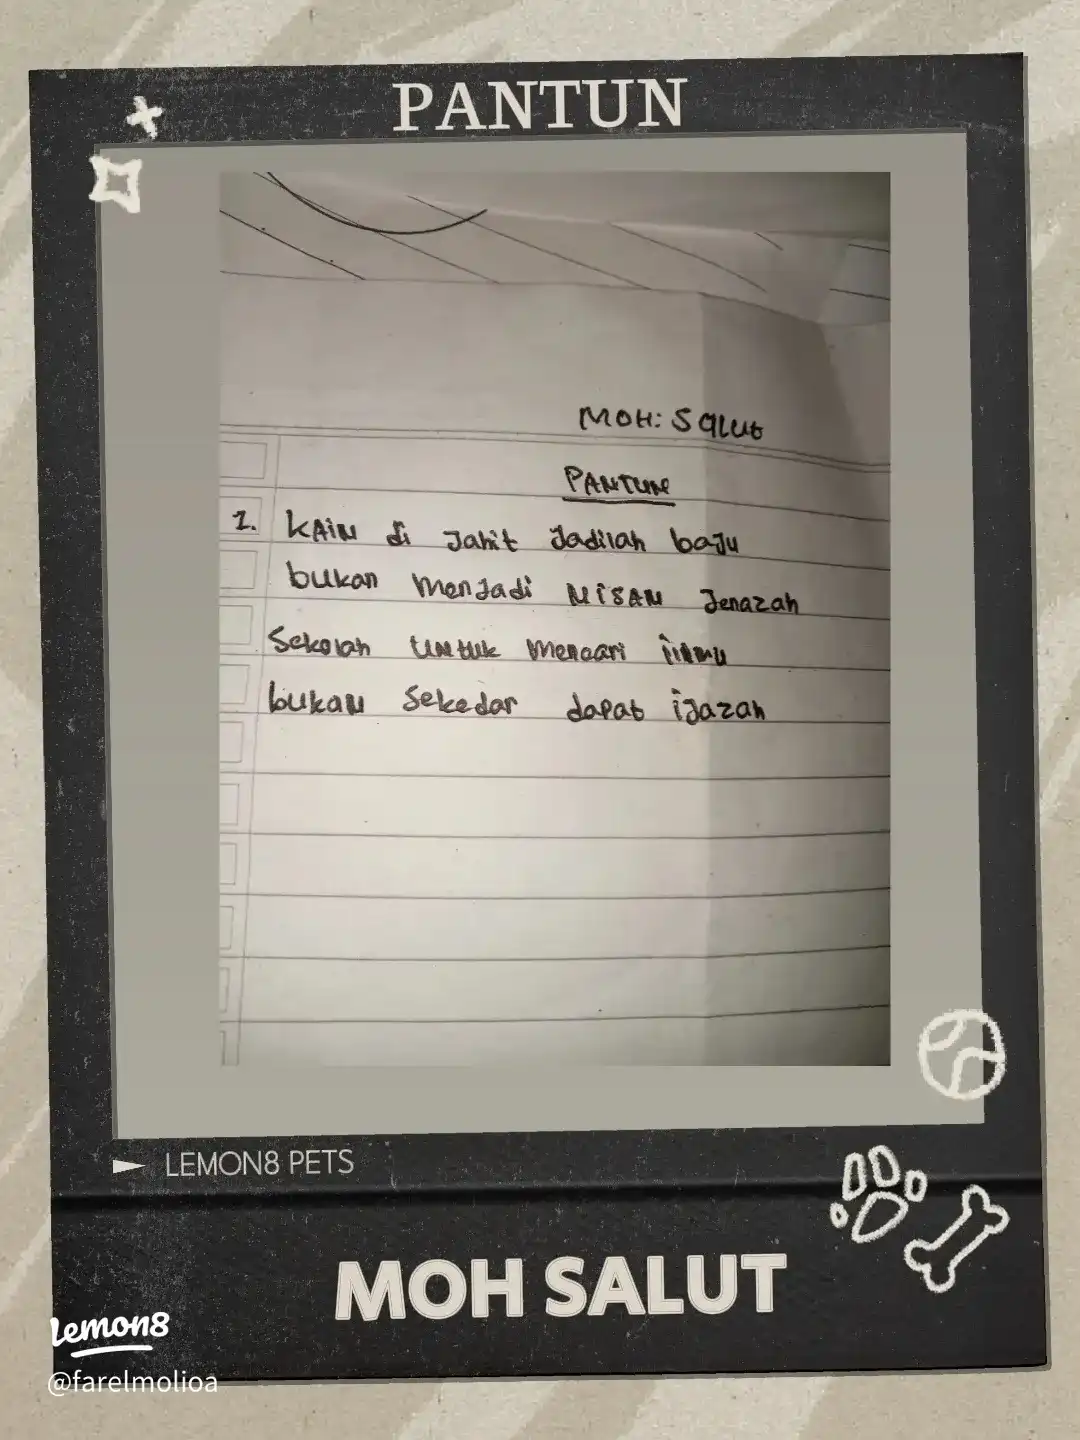 PANTUN
MOH: SALUt
PANTUN
1. KAiN di Jahit Jadilah baJu
bukan MenJadi NiSAN Jenazah
Sekolah UNtuk Mencari iiLMu
bukaN Sekedar dapat iJazah
LEMON8 PETS
MOH SALUT
Lemon8
@farelmolioa